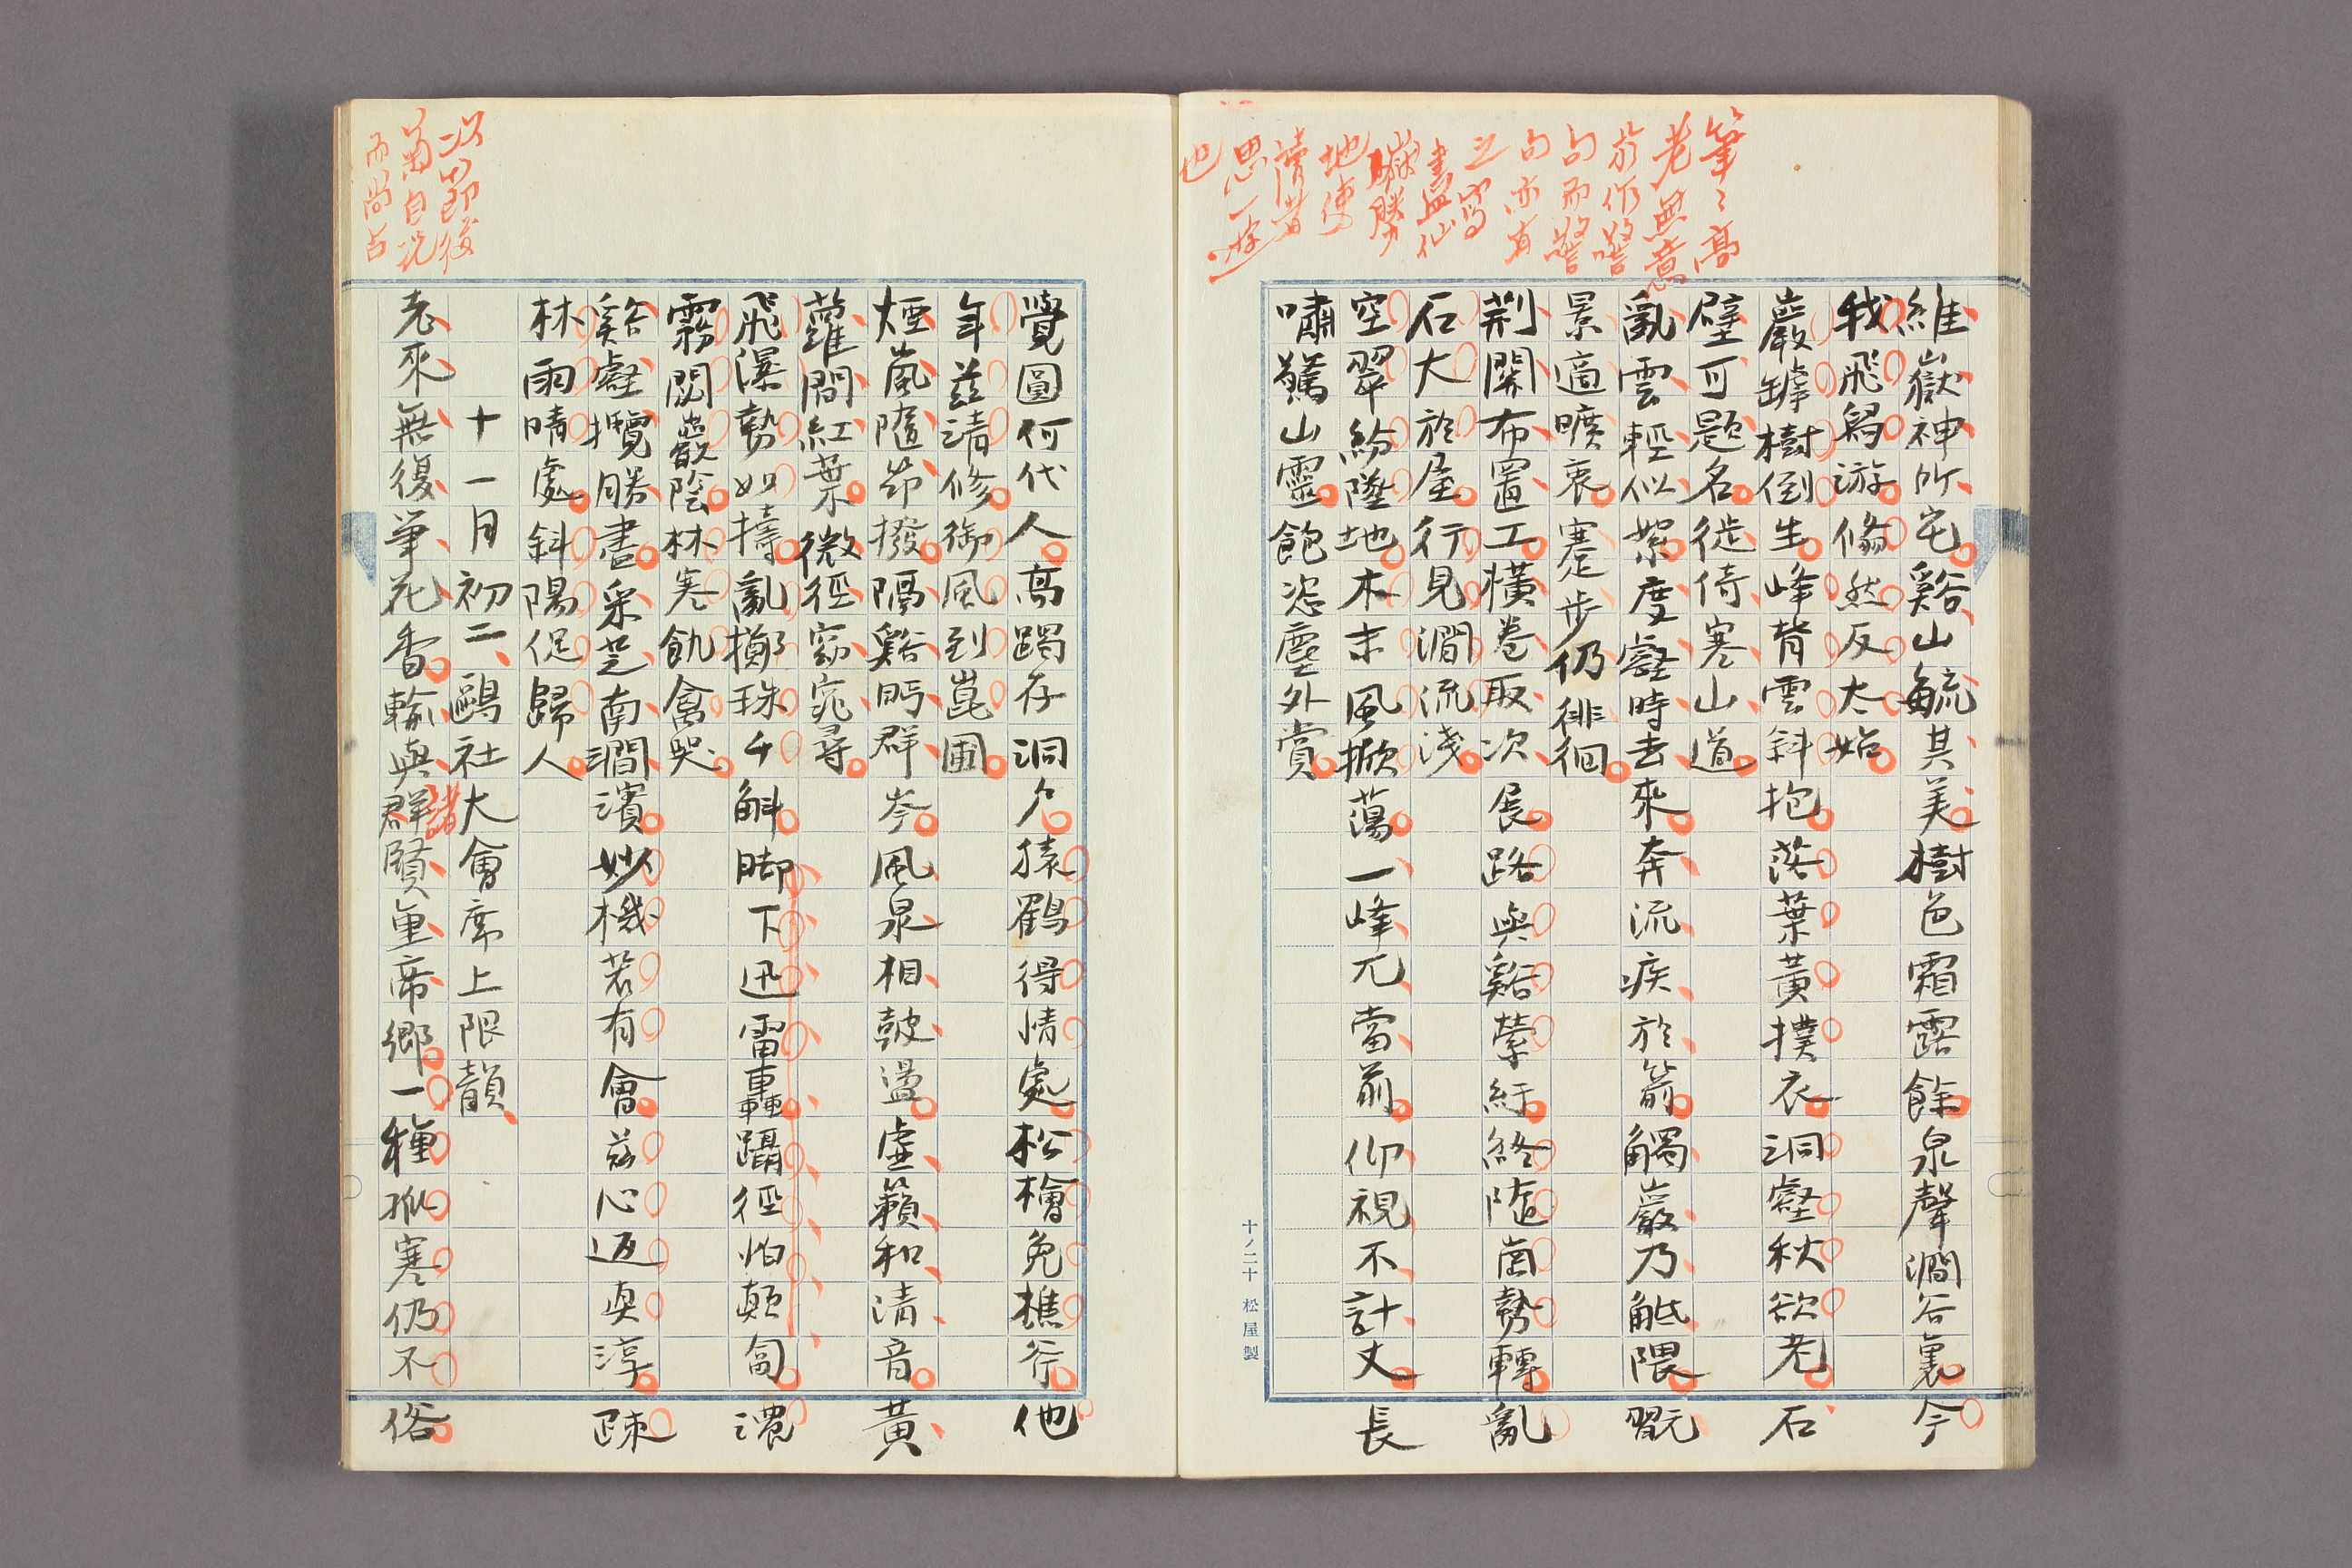 筆〻高
老無意
於作警
句而警
句亦有
之寫
盡仙
嶽勝
地使
讀者
思一游
也
維嶽神所宅谿山毓其美樹色霜露餘泉聲澗谷裏今
我飛舄游翛然反太始
巖罅樹倒生峰背雲斜抱落葉黃撲衣洞壑秋欲老石
壁可題名徙倚寒山道
亂雲輕似絮度壑時去來奔流疾於箭觸巖乃觝隈翫
景適曠衷蹇步仍徘徊
荆關布置工橫卷取次展路與谿縈紆終隨崗勢轉亂
石大於屋行見澗流淺
空翠紛墮地木末風掀蕩一峰兀當前仰視不計丈長
嘯驚山靈飽恣塵外賞
十ノ二十 松屋製
覺圓何代人高躅存洞户猿鶴得情處松檜免樵斧他
年茲清修御風到崑圃
煙嵐隨笻撥隔谿眄群岑風泉相鼓盪虛籟和清音黃
蘿間紅葉微徑窈窕尋
飛瀑勢如擣亂擲珠千斛脚下迅雷轟躡徑怕顛匐濃
霧閟巖陰林寒飢禽哭
谿壑攬勝書采芝南澗濱妙機若有會茲心返真淳疎
林雨晴處斜陽促歸人
十一月初二鷗社大會席上限韻
老來無復筆花香輸與群諸賢重帝鄉一種孤寒仍不俗
次節後
菊自況
而尚占